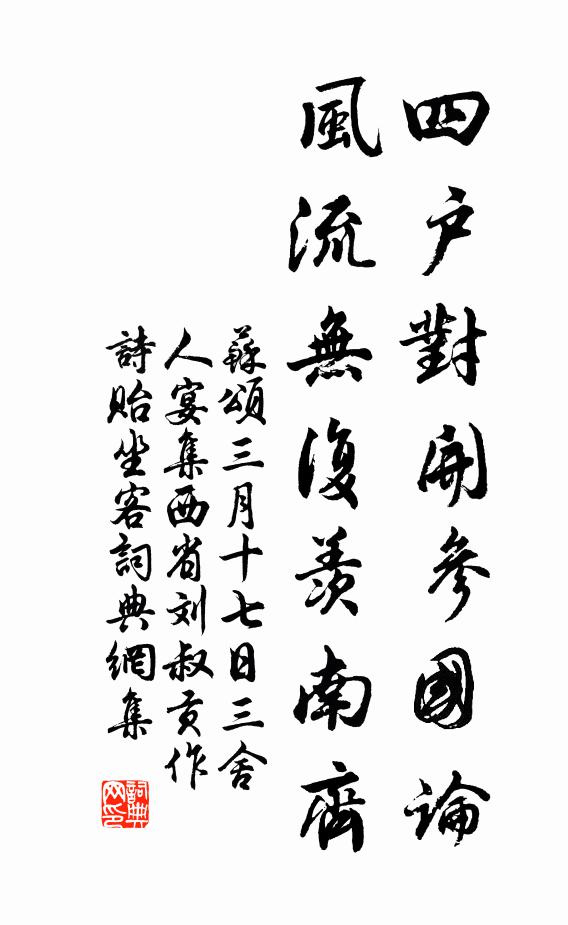 四戶對開參國論
風流無復羨南齊
蘇頌三月十七日三舍
人宴集西省刘叔贡作
詩貽坐客詞典網集
詞典网印